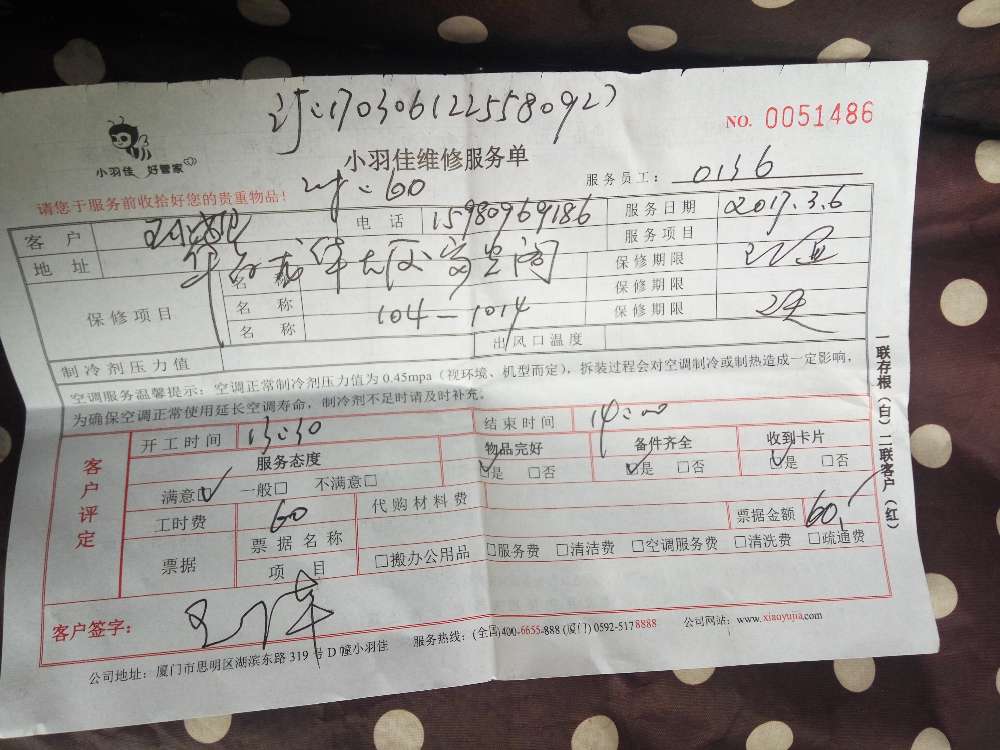 订:17030612255580927
NO. 0051486
小羽佳 好管家
小羽佳维修服务单
服务员工: 0136
请您于服务前收拾好您的贵重物品! :60
客户 电话 15980969186 服务日期 2017.3.6
地址 服务项目
保修项目 名称 保修期限
名称 104-1014 保修期限
名称 保修期限
制冷剂压力值 出风口温度
空调服务温馨提示:空调正常制冷剂压力值为0.45mpa(视环境、机型而定),拆装过程会对空调制冷或制热造成一定影响,
为确保空调正常使用延长空调寿命,制冷剂不足时请及时补充。
客户评定
开工时间 13:30 结束时间 14:00
服务态度 物品完好 备件齐全 收到卡片
满意☑ 一般□ 不满意□ ☑是 □否 ☑是 □否 ☑是 □否
工时费 60 代购材料费 票据金额 60
票据 票据名称
项目 □搬办公用品 □服务费 □清洁费 □空调服务费 □清洗费 □疏通费
客户签字:
公司地址:厦门市思明区湖滨东路319号D幢小羽佳 服务热线:(全国)400-6655-888 (厦门) 0592-5178888 公司网站:www.xiaoyujia.com
一联存根(白)二联客户(红)